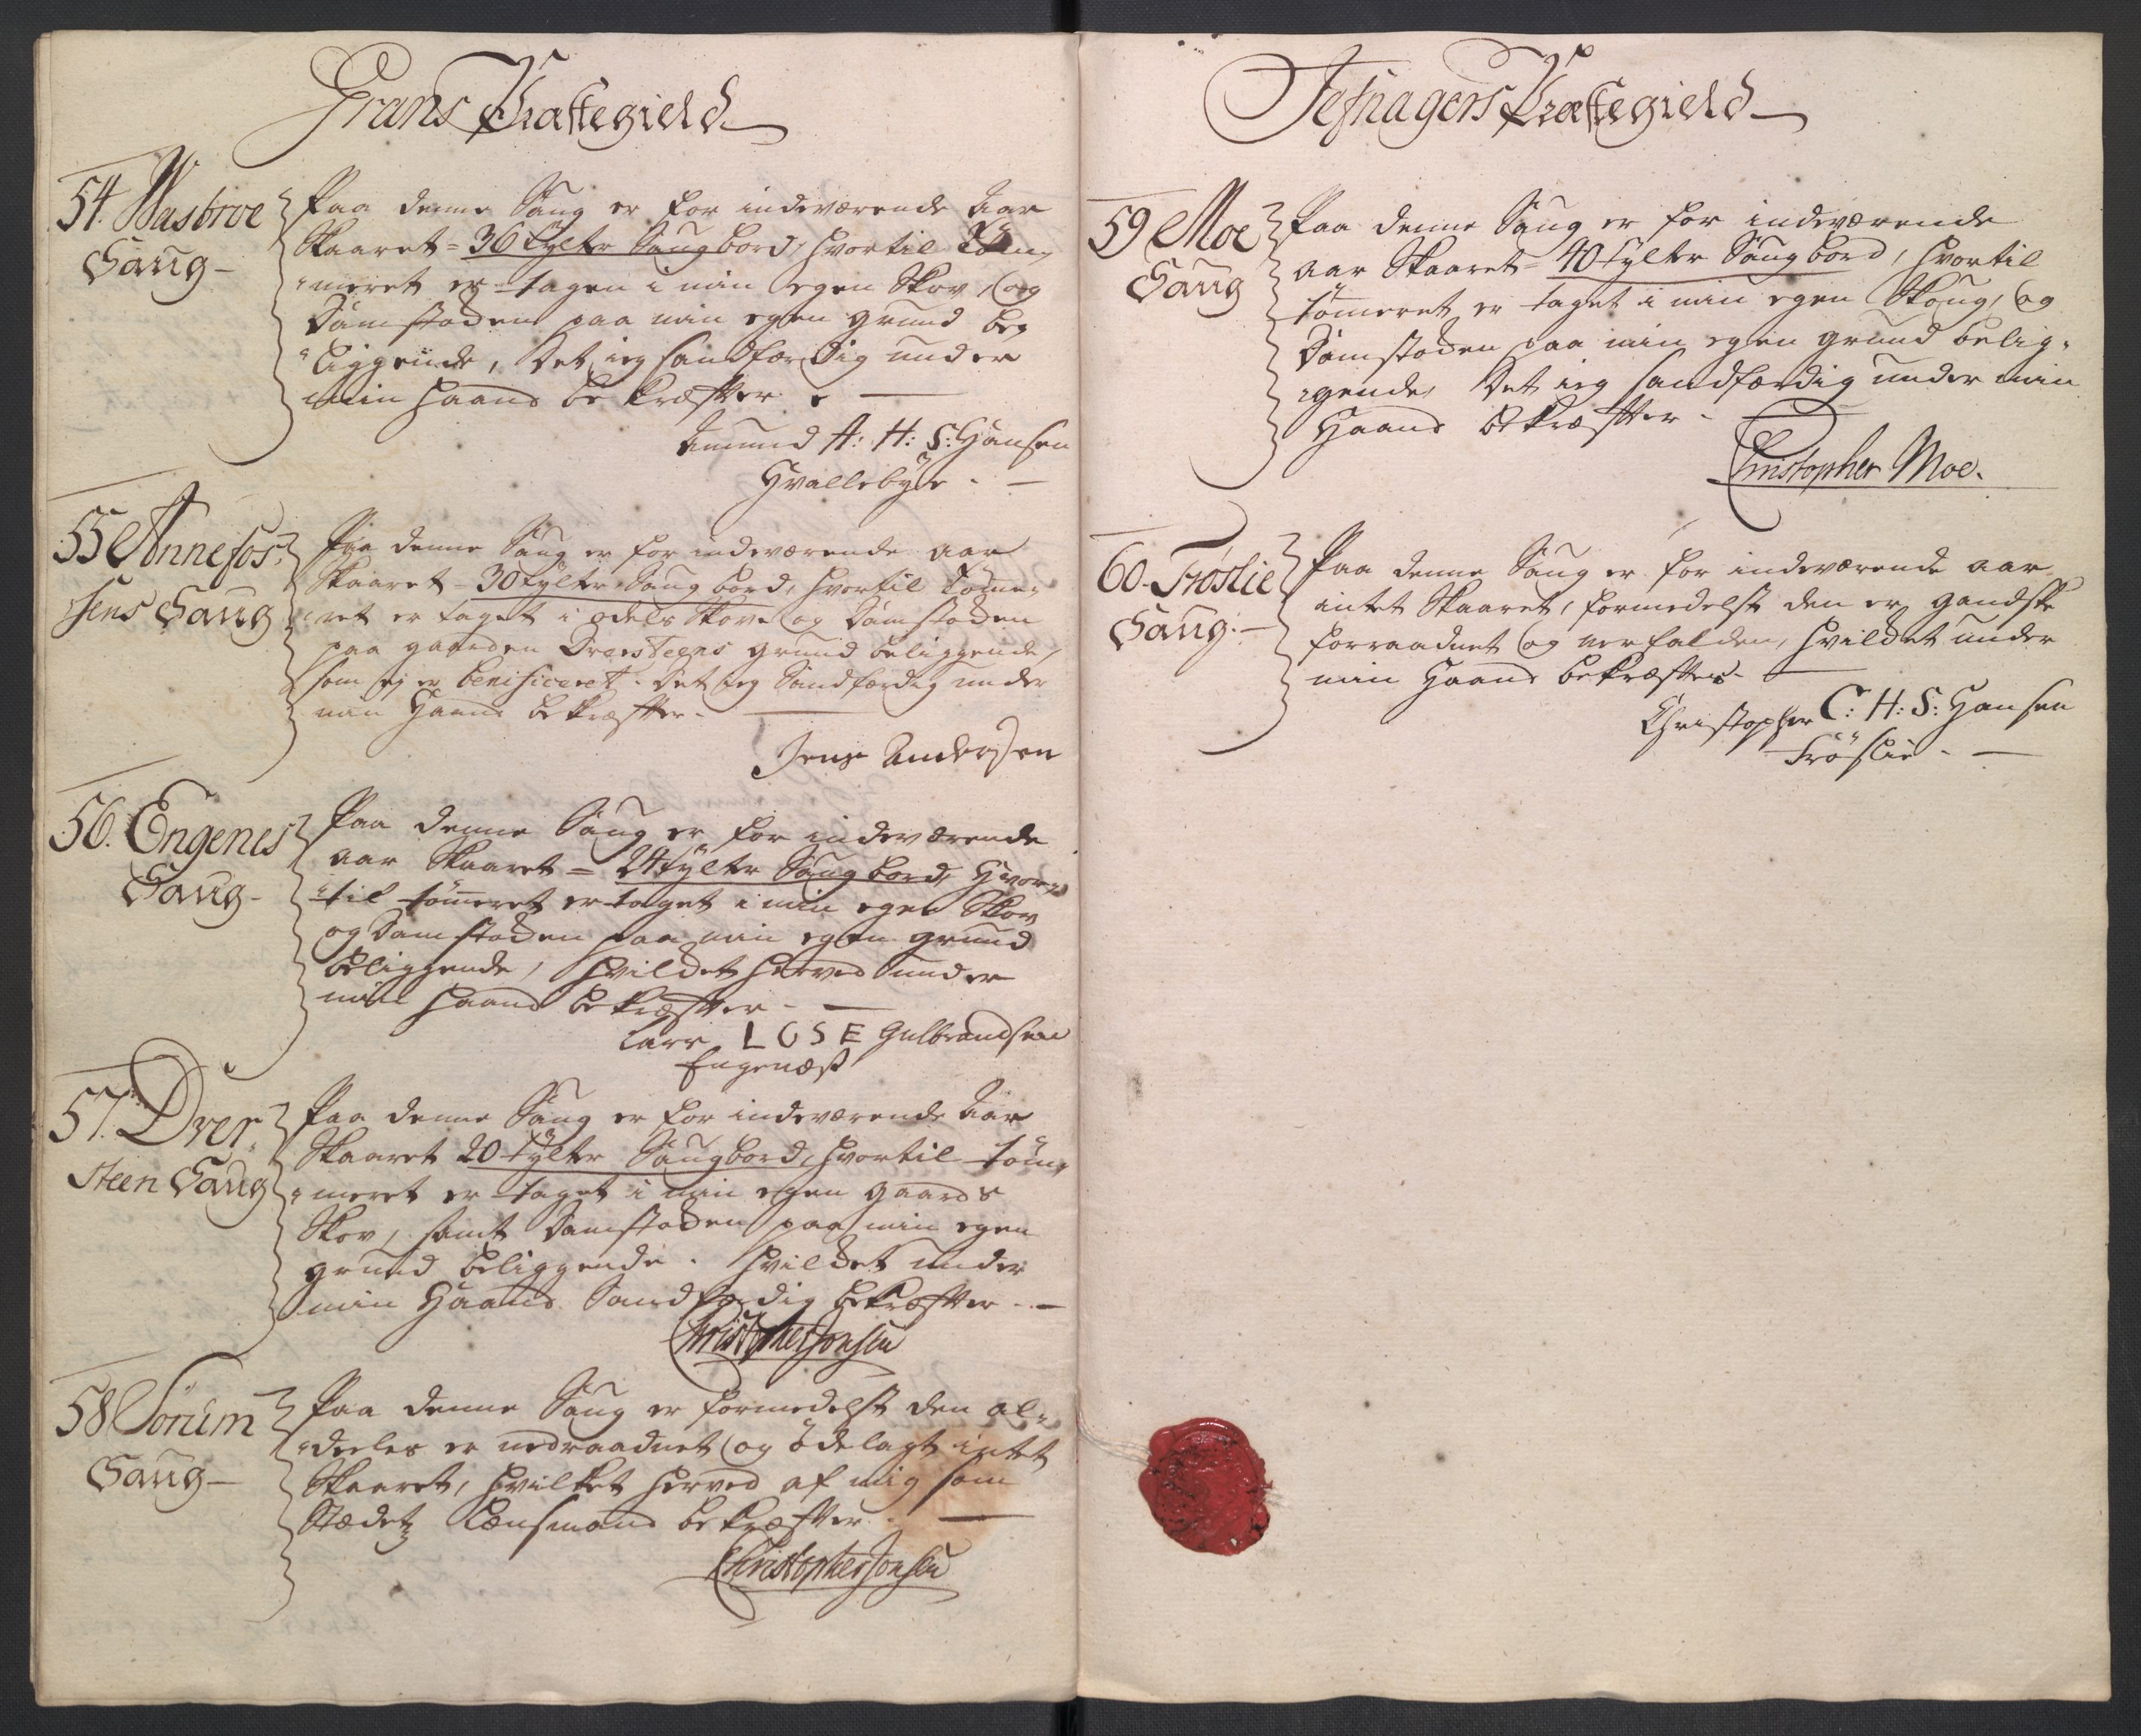 Grans Præstegield
54. Wasbroe
Saug
Paa denne Saug er for indeværende Aar
Skaaret = 36 Tylter Saugbord, hvortil Töm,
meret er tagen i min egen Skov, og
Damstoden paa min egen grund be,
liggende, Det ieg Sandfærdig under
min Haand bekræfter
Amund A: H: S: Hansen
Hvallebye
55 Annefos,
sens Saug
Paa denne Saug er for indeværende aar
Skaaret = 30 tylter Saugbord, hvortil Töme,
ret er taget i odels Skove og Damstoden
paa gaarden Dversteens grund beliggende,
som ej er benificeret. Det ieg Sandfærdig under
min Haand bekræfter.
Jens Andersen
56. Engenes
Saug
Paa denne Saug er for indeværende
aar Skaaret = 24 tylter Saugbord, Hvor,
til tömeret er taget i min egen Skov
og Damstoden paa min egen grund
beliggende, hvildet herved under
min Haand bekræfter
Lars L G S E Gulbrandsen
Engenæs
57. Dver,
steen Saug
Paa denne Saug er for indeværende Aar
Skaaret 20 tylter Saugbord, hvortil töm,
meret er taget i min egen gaards
Skov, samt Damstoden paa min egen
grund beliggende. hvildet under
min Haand Sandfærdig bekræfter
Christopher Jonsen
58 Sörum
Saug
Paa denne Saug er formedelst den al,
deeles er nedraadnet og ödelagt intet
Skaaret, hvilket herved af mig som
Stædets Lænsmand bekræfter
Christopher Jonsen
Jefnagers Præstegield
59 Moe
Saug
Paa denne Saug er for indeværende
aar Skaaret = 40 tylter Saugbord, hvortil
tömeret er taget i min egen Skoug, og
Damstoden paa min egen grund belig,
gende, Det ieg sandfærdig under min
Haand bekræfter
Christopher Moe.
60. Fröslie
Saug.
Paa denne Saug er for indeværende aar
intet Skaaret, formedelst den er gandske
forraadnet og nerfalden, hvildet under
min Haand bekræfter
Christopher C: H: S: Hansen
Fröslie